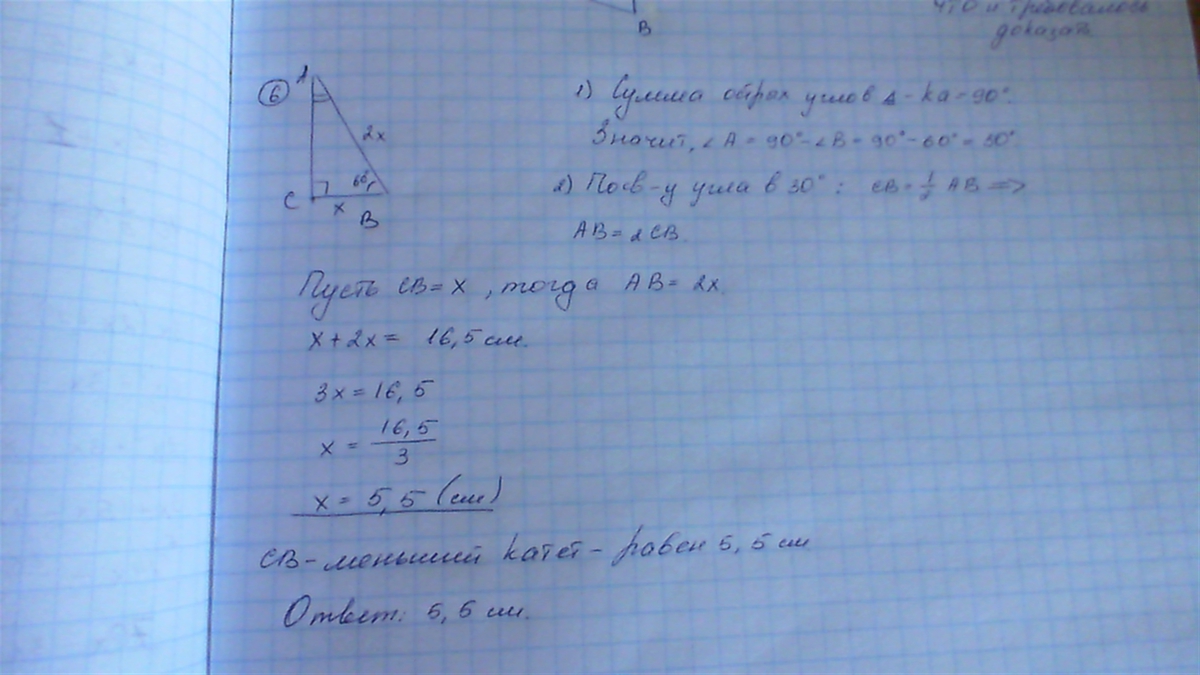 В
что и требовалось
доказать
6
A
2x
60°
C
x
B
1) Сумма острых углов Δ-ка = 90°.
Значит, ∠A = 90° - ∠B = 90° - 60° = 30°
2) По св-у угла в 30°: CB = 1/2 AB =>
AB = 2CB.
Пусть CB = x, тогда AB = 2x.
x + 2x = 16,5 см.
3x = 16,5
x = 16,5/3
x = 5,5 (см)
CB - меньший катет - равен 5,5 см
Ответ: 5,5 см.